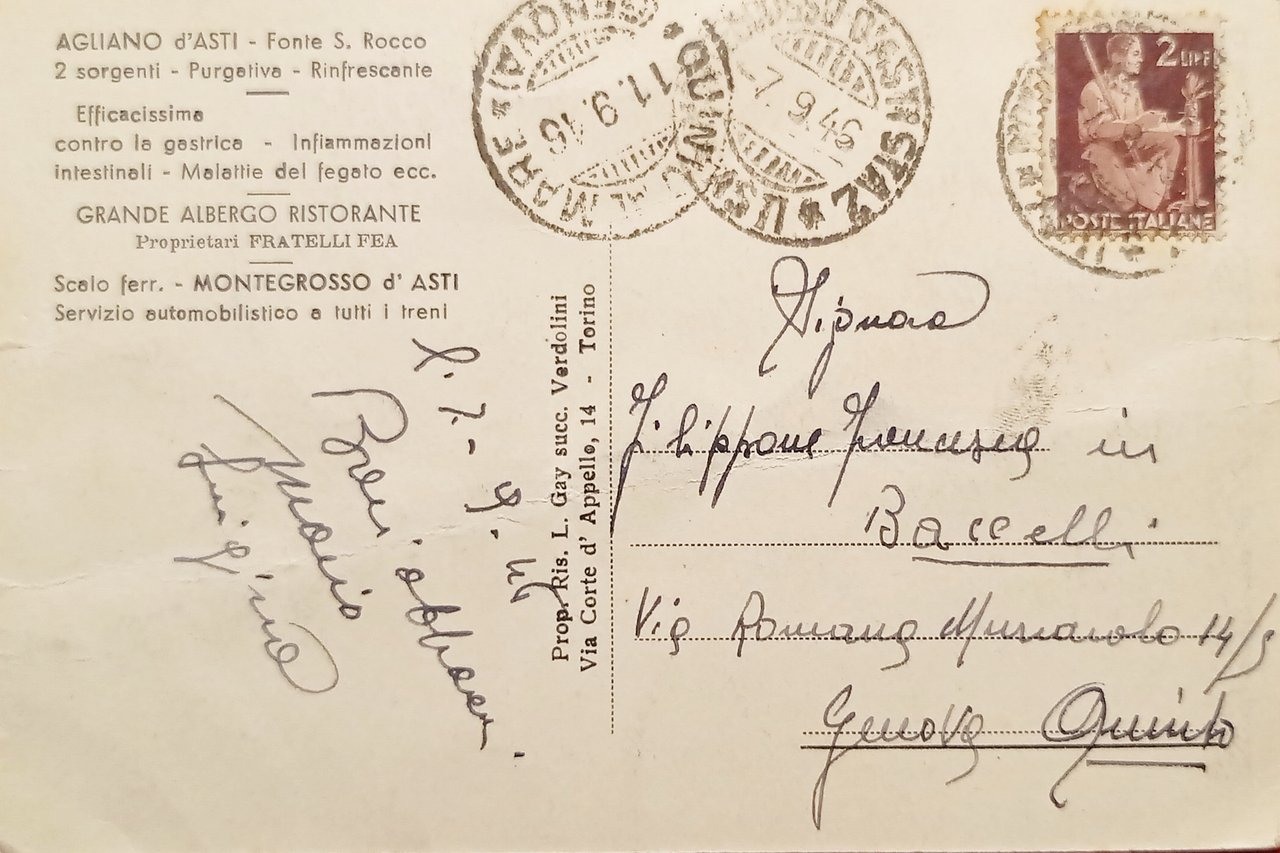 AGLIANO d'ASTI - Fonte S. Rocco
2 sorgenti - Purgativa - Rinfrescante
Efficacissima
contro la gastrica - Infiammazioni
intestinali - Malattie del fegato ecc.
GRANDE ALBERGO RISTORANTE
Proprietari FRATELLI FEA
Scalo ferr. - MONTEGROSSO d' ASTI
Servizio automobilistico a tutti i treni
7 - 9 - 46
Baci abbracci
Mario
Luigina
Prop. Ris. L. Gay succ. Verdolini
Via Corte d' Appello, 14 - Torino
QUINTO AL MARE * (GENOVA) *
11.9.46
7.9.46
2 LIRE
POSTE ITALIANE
Signora
Filippone Francesca in
Baccelli
Via Romana 14/3
Genova Quinto